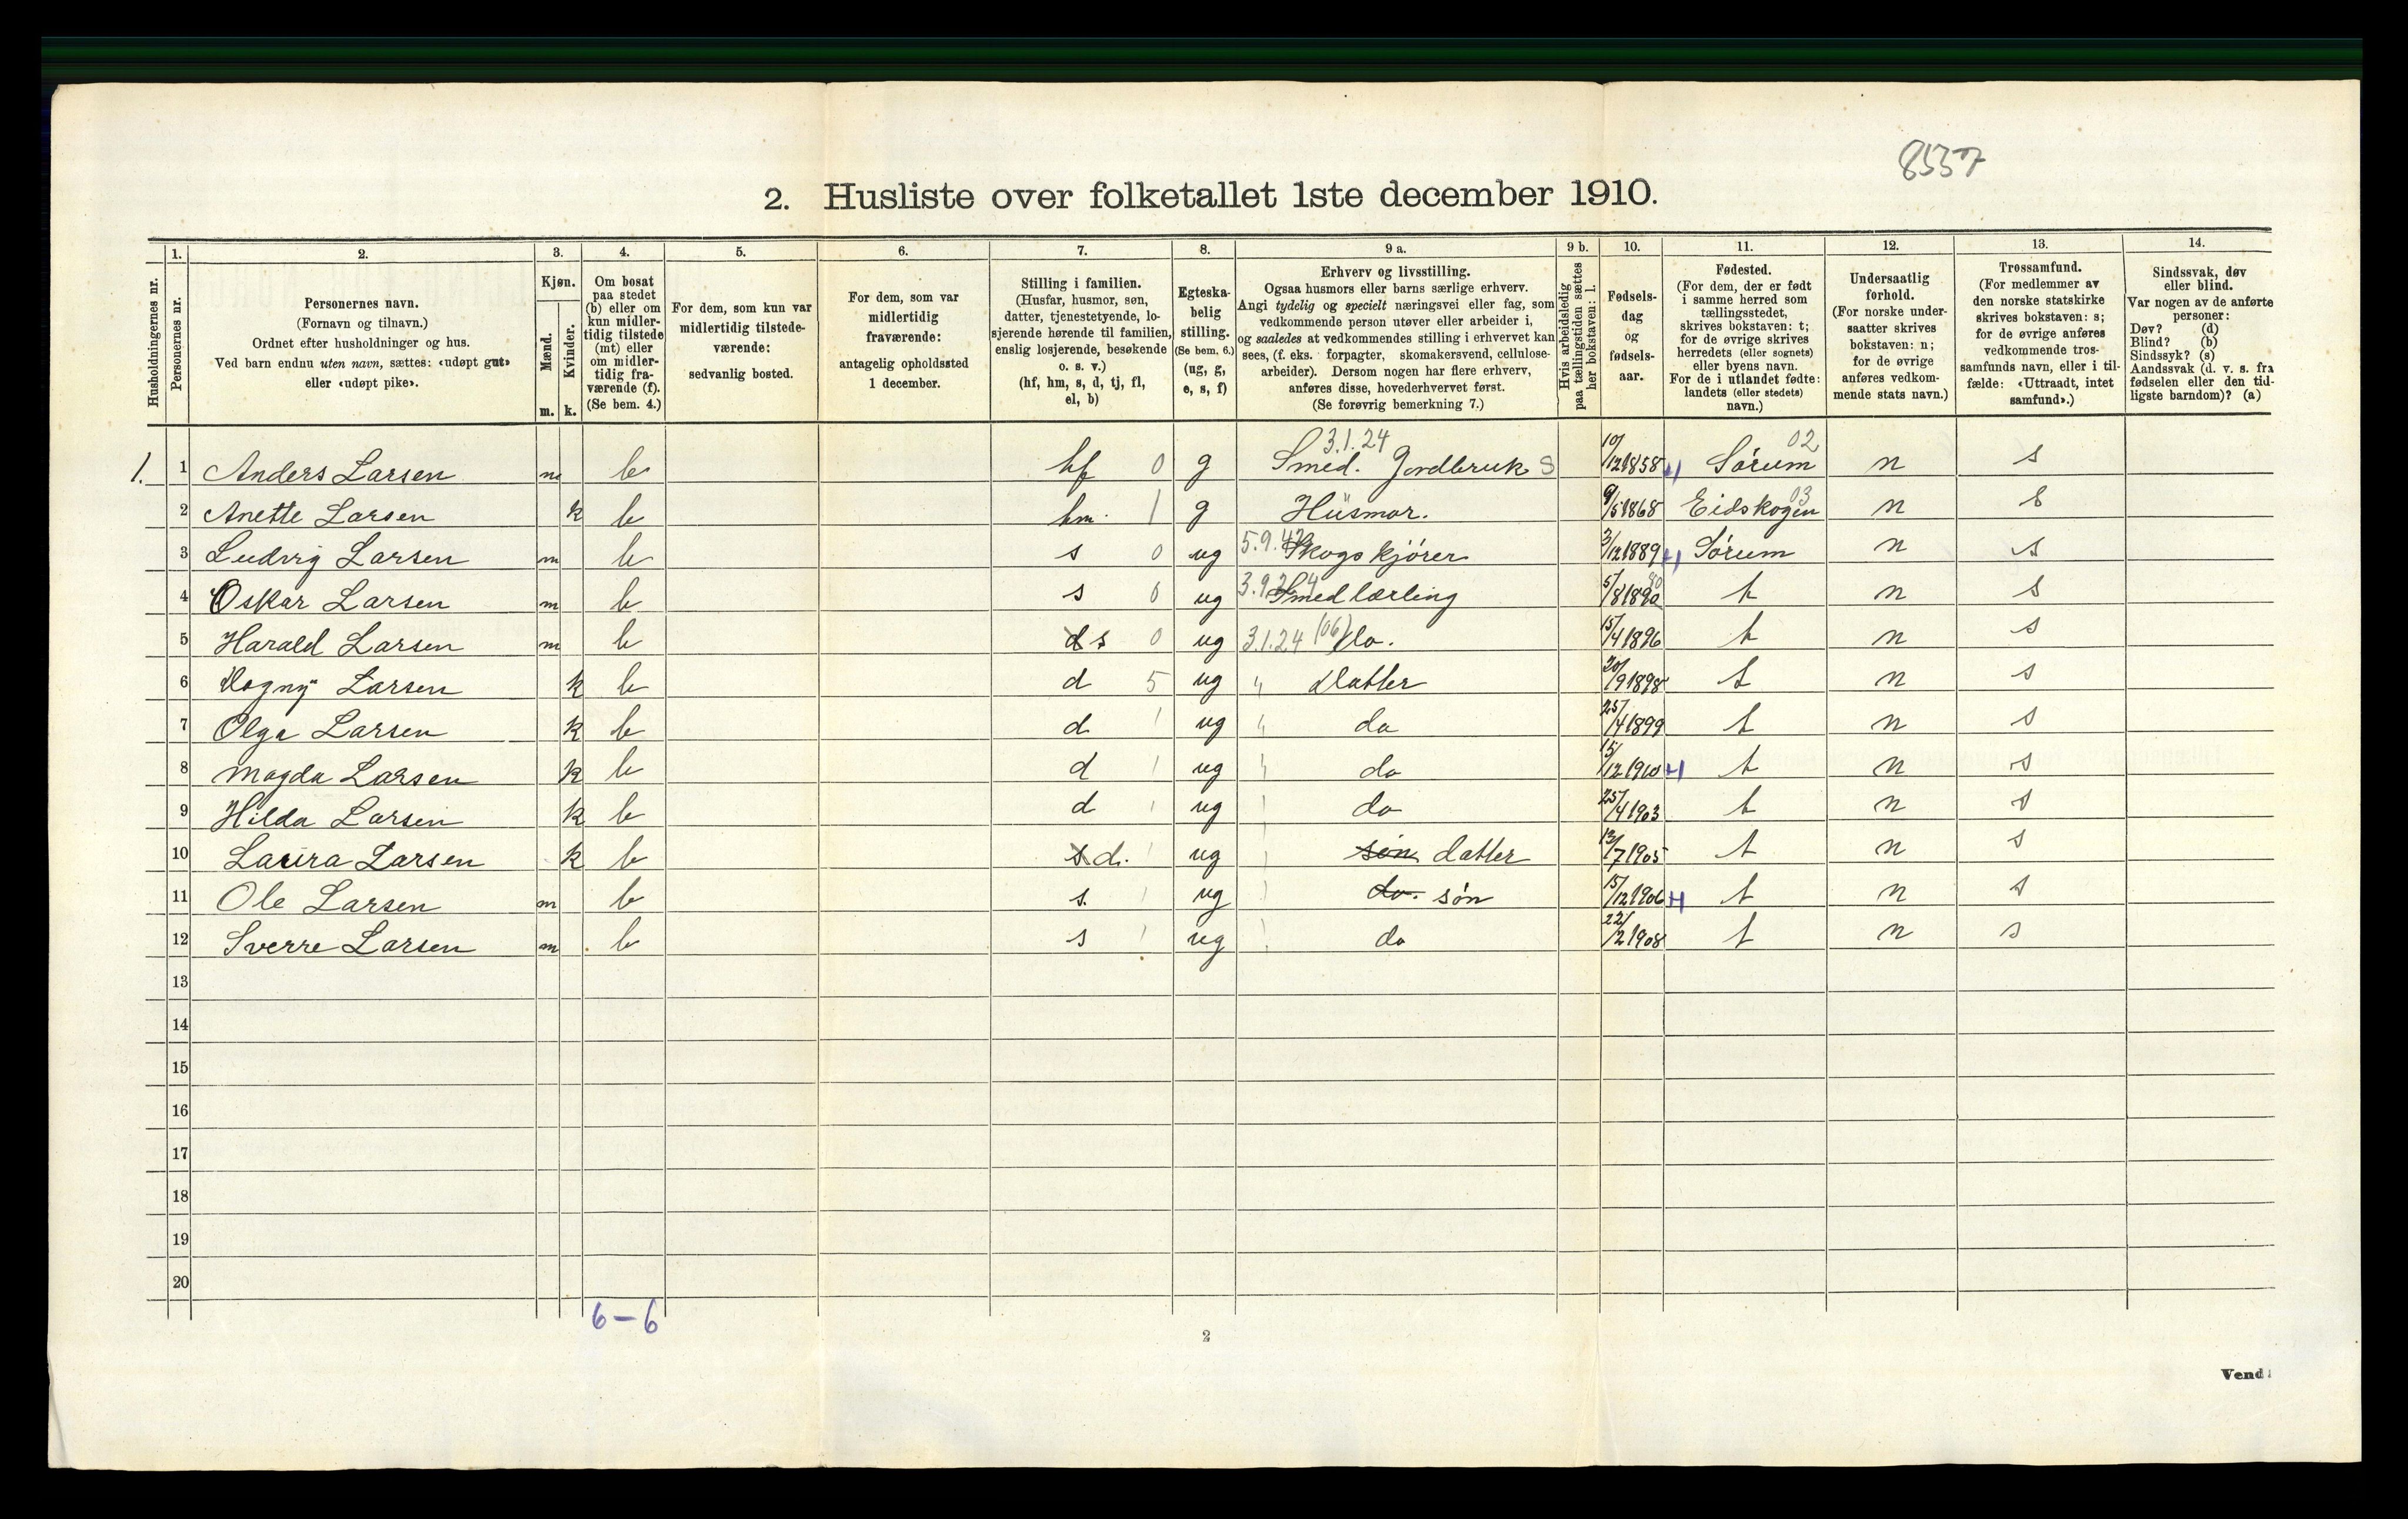 8557
2. Husliste over folketallet 1ste december 1910.
Husholdningernes nr.
1. Personernes nr.
2. Personernes navn. (Fornavn og tilnavn.) Ordnet efter husholdninger og hus. Ved barn endnu uten navn, sættes: «udøpt gut» eller «udøpt pike».
3. Kjøn. Mænd. m. Kvinder. k.
4. Om bosat paa stedet (b) eller om kun midlertidig tilstede (mt) eller om midlertidig fraværende (f). (Se bem. 4.)
5. For dem, som kun var midlertidig tilstedeværende: sedvanlig bosted.
6. For dem, som var midlertidig fraværende: antagelig opholdssted 1 december.
7. Stilling i familien. (Husfar, husmor, søn, datter, tjenestetyende, losjerende hørende til familien, enslig losjerende, besøkende o. s. v.) (hf, hm, s, d, tj, fl, el, b)
8. Egteskabelig stilling. (Se bem. 6.) (ug, g, e, s, f)
9 a. Erhverv og livsstilling. Ogsaa husmors eller barns særlige erhverv. Angi tydelig og specielt næringsvei eller fag, som vedkommende person utøver eller arbeider i, og saaledes at vedkommendes stilling i erhvervet kan sees, (f. eks. forpagter, skomakersvend, cellulosearbeider). Dersom nogen har flere erhverv, anføres disse, hovederhvervet først. (Se forøvrig bemerkning 7.)
9 b. Hvis arbeidsledig paa tællingstiden sættes her bokstaven: l.
10. Fødselsdag og fødselsaar.
11. Fødested. (For dem, der er født i samme herred som tællingsstedet, skrives bokstaven: t; for de øvrige skrives herredets (eller sognets) eller byens navn. For de i utlandet fødte: landets (eller stedets) navn.)
12. Undersaatlig forhold. (For norske undersaatter skrives bokstaven: n; for de øvrige anføres vedkommende stats navn.)
13. Trossamfund. (For medlemmer av den norske statskirke skrives bokstaven: s; for de øvrige anføres vedkommende trossamfunds navn, eller i tilfælde: «Uttraadt, intet samfund».)
14. Sindssvak, døv eller blind. Var nogen av de anførte personer: Døv? (d) Blind? (b) Sindssyk? (s) Aandssvak (d. v. s. fra fødselen eller den tidligste barndom)? (a)
1. 1 Anders Larsen m b hf 0 g 3.1.24 Smed. Jordbruk S 10/12 1858 Sørum 02 n s
2 Anette Larsen k b hm. 1 g Husmor. 9/5 1868 Eidskogen 03 n s
3 Ludvig Larsen m b s 0 ug 5.9.42 Skogskjører 3/12 1889 Sørum n s
4 Oskar Larsen m b s 0 ug 3.9.24 Smedlærling 5/8 1890 t n s
5 Harald Larsen m b d s 0 ug 3.1.24 (06) do. 15/4 1896 t n s
6 Dagny Larsen k b d 5 ug " Datter 20/9 1898 t n s
7 Olga Larsen k b d 1 ug " do 25/4 1899 t n s
8 Magda Larsen k b d 1 ug do 15/12 1900 t n s
9 Hilda Larsen k b d 1 ug do 25/4 1903 t n s
10 Laura Larsen k b s d. 1 ug søn datter 13/7 1905 t n s
11 Ole Larsen m b s. 1 ug do. søn 15/12 1906 t n s
12 Sverre Larsen m b s 1 ug do 22/2 1908 t n s
13
14
15
16
17
18
19
20
6-6
2
Vend!